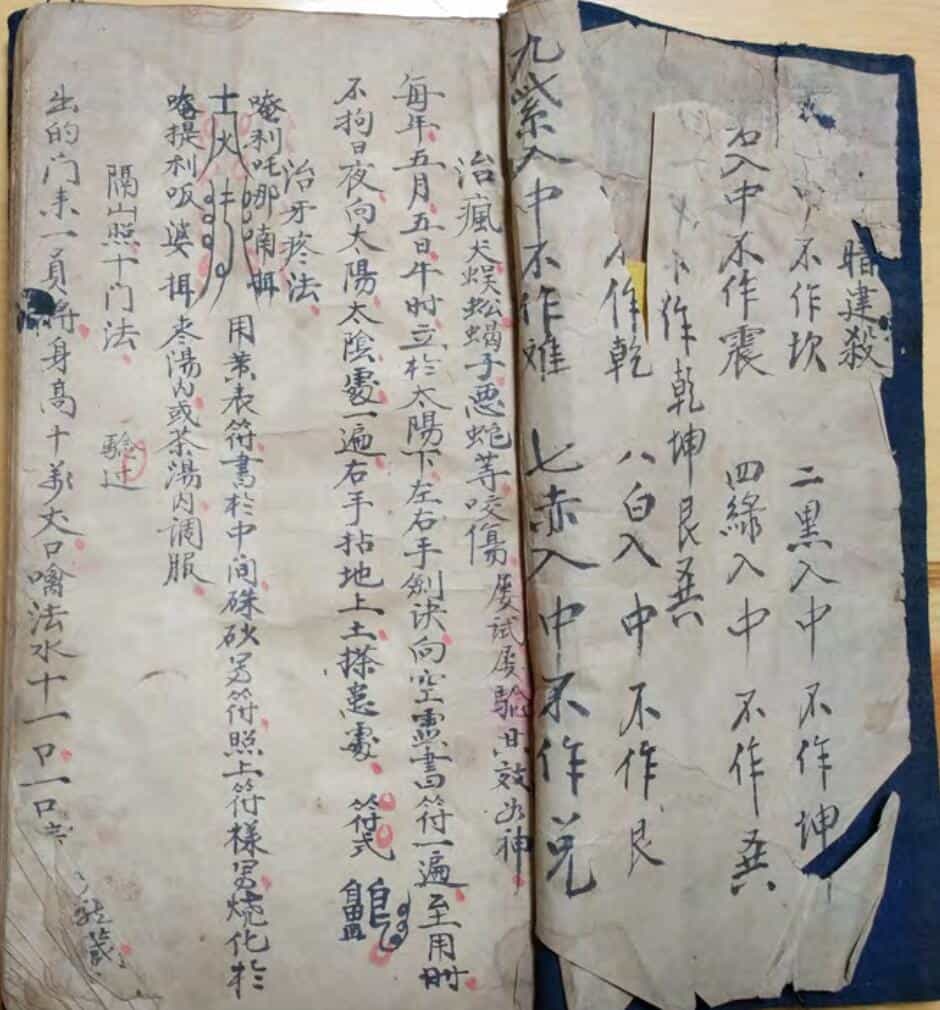 暗建殺
不作坎 二黒入中不作坤
入中不作震 四緑入中不作巽
不作乾坤艮巽
不作乾 八白入中不作艮
九紫入中不作难 七赤入中不作兑
治瘋犬蜈蚣蝎子悪蛇等咬傷 屡试屡驗其效如神
毎年五月五日午时立於太陽下左右手劍決向空虚書符一遍至用时
不拘日夜向太陽太陰處一遍右手拈地上土搽患處 符式
治牙疼法
唵利吒哪南 用黄表符書於中间硃砂另符照上符樣另燒化於
唵提利 婆 枣湯内或茶湯内调服
隔山照十门法 驗过
出的门来一員将身高十 丈口噙法水十一口一口